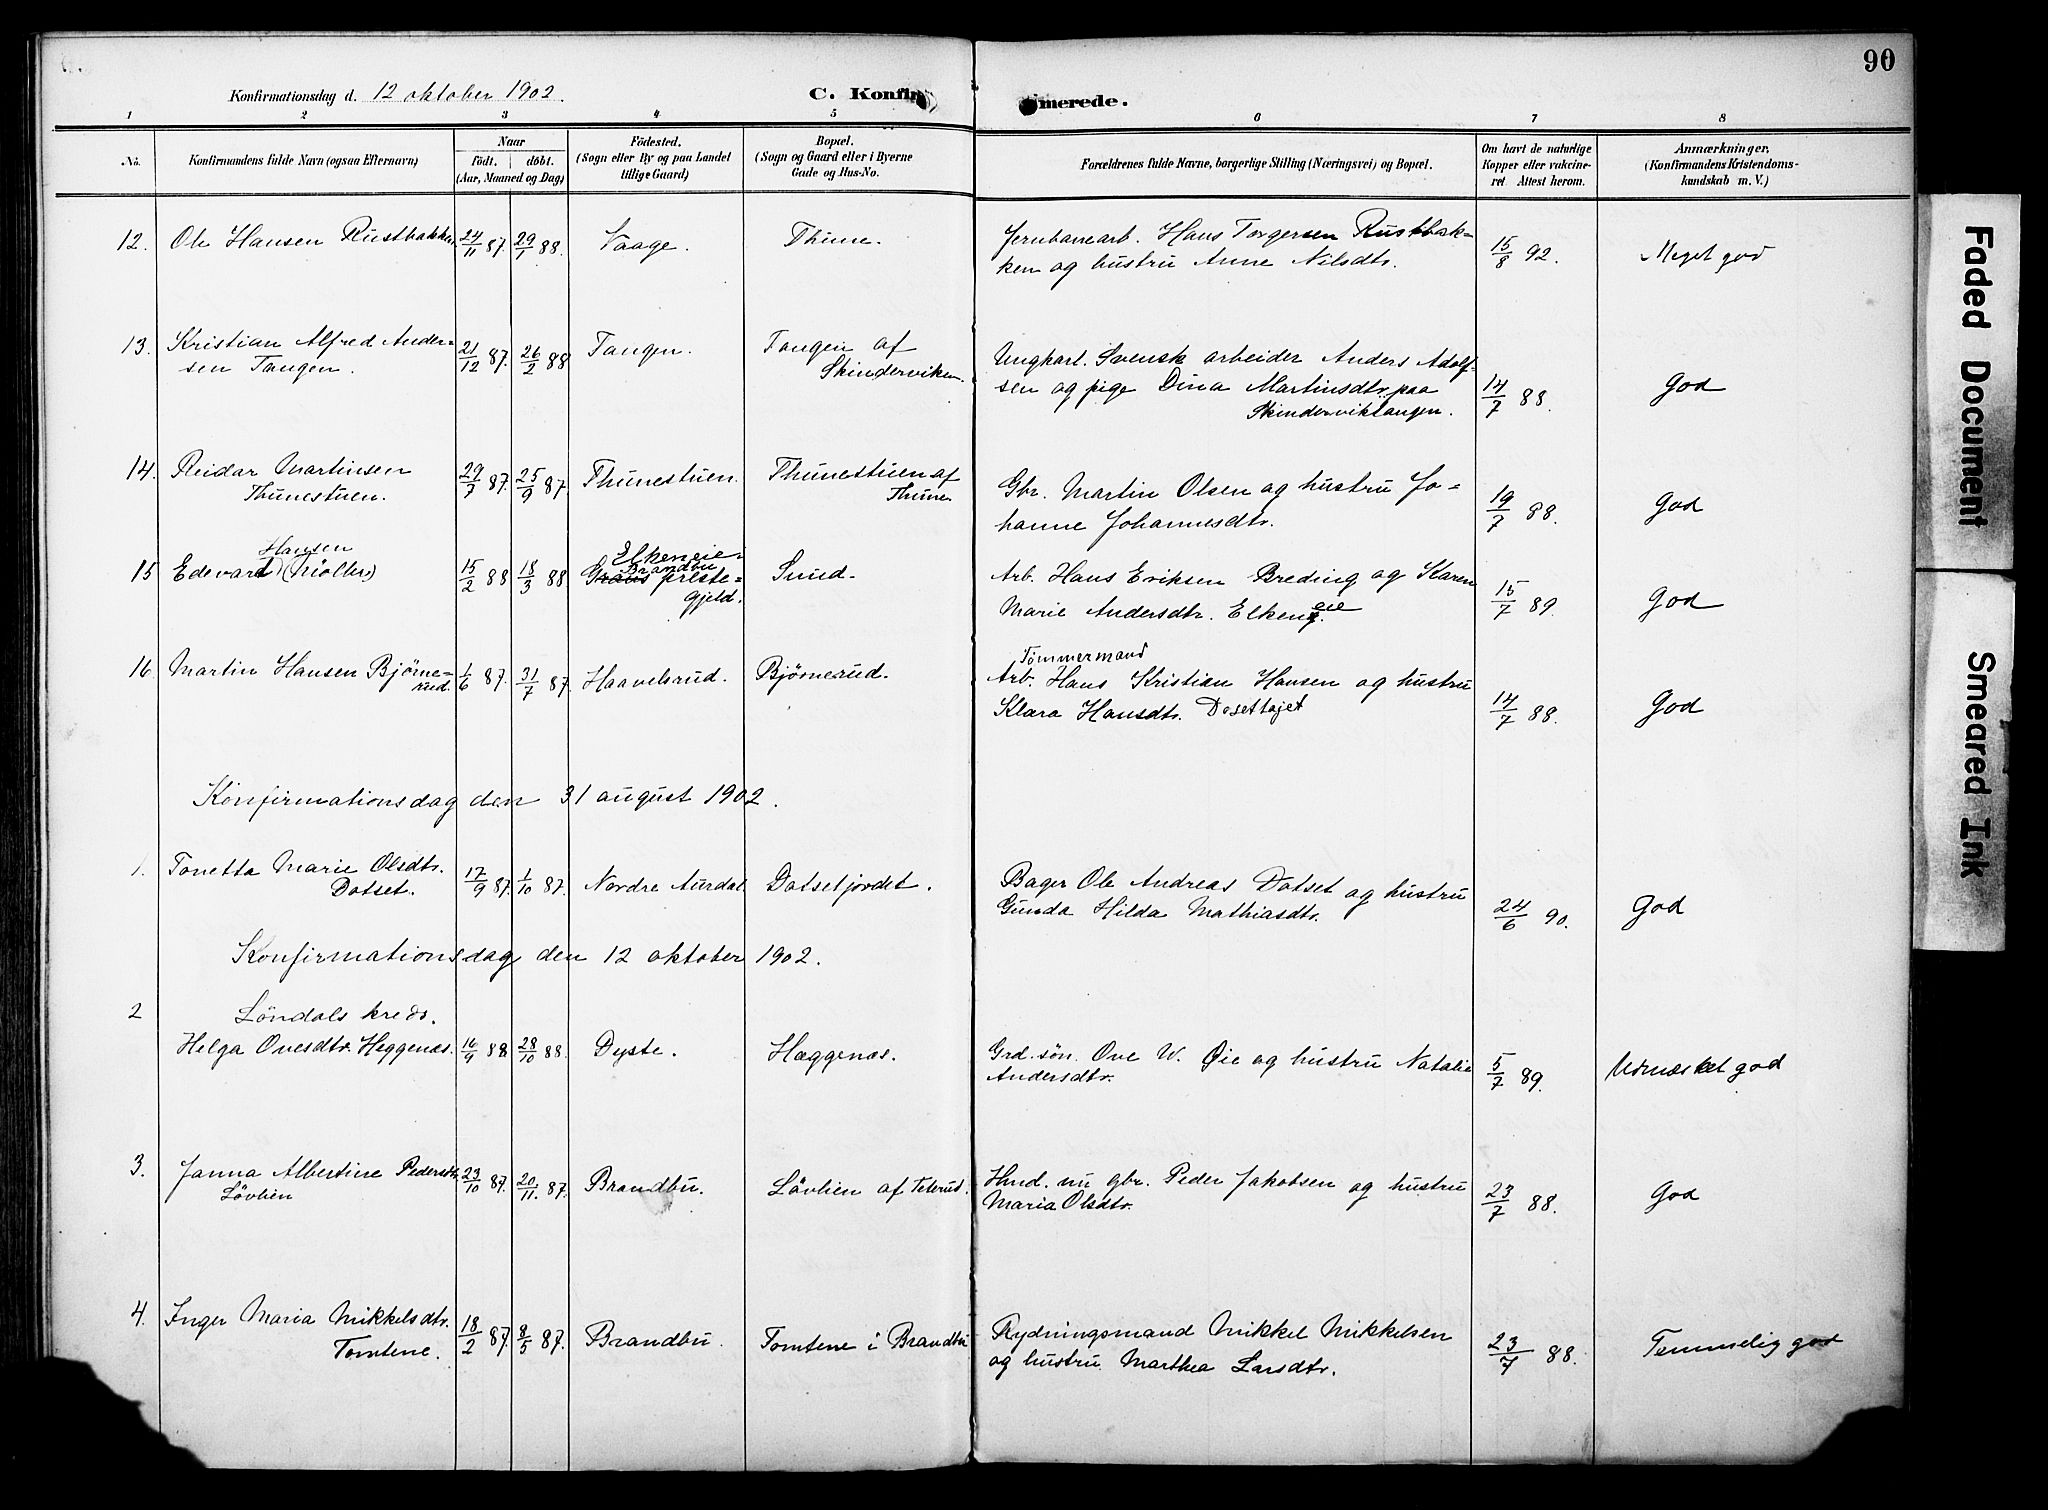 90
Konfirmationsdag d. 12 oktober 1902.
C. Konfirmerede.
1 2 3 4 5 6 7 8
No. Konfirmandens fulde Navn (ogsaa Efternavn)
Naar
födt. döbt.
(Aar, Maaned og Dag)
Födested.
(Sogn eller By og paa Landet
tillige Gaard)
Bopæl.
(Sogn og Gaard eller i Byerne
Gade og Hus-No.
Forældrenes fulde Navne, borgerlige Stilling (Næringsvei) og Bopæl.
Om havt de naturlige
Kopper eller vakcine-
ret Attest herom.
Anmærkninger,
(Konfirmandens Kristendoms-
kundskab m. V.)
12. Ole Hansen Rustbakken 24/11 87. 29/1 88. Vaage. Thune. Jernbanearb. Hans Torgersen Rustbak=
ken og hustru Anne Nilsdtr. 15/8 92. Meget god
13. Kristian Alfred Ander=
sen Tangen. 21/12 87. 26/2 88 Tangen. Tangen af
Skinderviken. Ungkarl. Svensk arbeider Anders Adolf=
sen og pige Dina Martinsdtr. paa
Skinderviktangen. 14/7 88. God
14. Reidar Martinsen
Thunestuen. 29/7 87. 25/9 87. Thunestuen. Thunestuen af
Thune Gbr. Martin Olsen og hustru Jo=
hanne Johannesdtr. 19/7 88. God
Hansen
15 Edevard (Möller) 15/2 88 18/3 88 Elkeneie=
Brandbu
Grans preste=
gjeld. Sund. Arb. Hans Eriksen Breding og Karen
Marie Andersdtr. Elkeneie. 15/7 89. God
16. Martin Hansen Bjørne=
rud. 1/6 87. 31/7 87. Haavelsrud. Bjørnerud. Tömmermand
Arb. Hans Kristian Hansen og hustru
Klara Hansdtr. Dosettajet 14/7 88. God
Konfirmationsdag den 31 august 1902.
1. Tonetta Marie Olsdtr.
Dotset. 17/9 87. 1/10 87. Nordre Aurdal Dotsetjordet. Bager Ole Andreas Dotset og hustru
Gunda Hilda Mathiasdtr. 24/6 90. God
Konfirmationsdag den 12 oktober 1902.
2 Löndals kreds.
Helga Ovesdtr. Heggenæs. 16/9 88 28/10 88. Dyste. Hæggenæs. Grd. sön. Ove W. Øie og hustru Natalie
Andersdtr. 5/7 89. Udmærket god
3. Janna Albertine Pedersdtr.
Lövlien 23/10 87. 20/11. 87. Brandbu. Lövlien af Teterud. Hmd. nu gbr. Peder Jakobsen og hustru
Maria Olsdtr. 23/7 88. God
4. Inger Maria Mikkelsdtr.
Tomtene. 18/2 87. 8/5 87. Brandbu. Tomtene i Brandbu Rydningsmand Mikkel Mikkelsen
og hustru Marthea Larsdtr. 23/7 88. Temmelig god
Faded Document
Smeared Ink